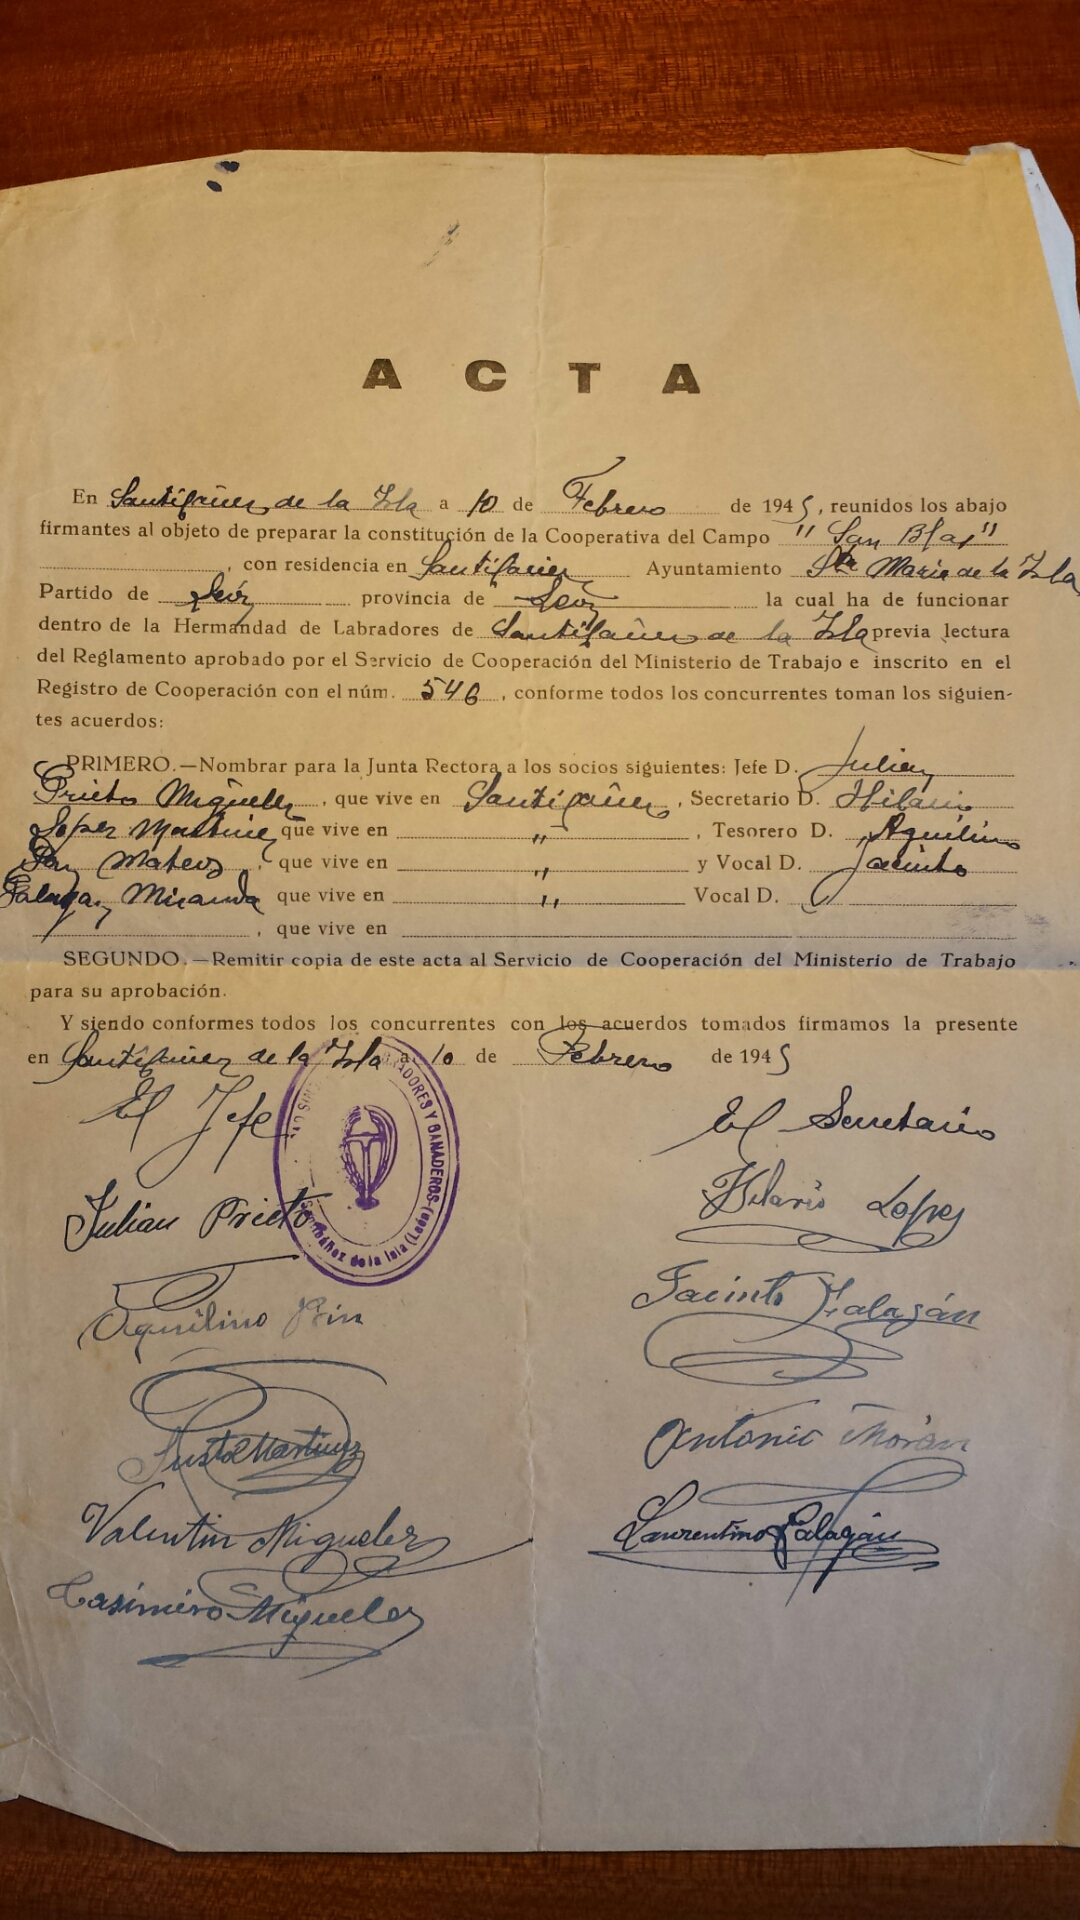 ACTA
En Santibáñez de la Isla a 10 de Febrero de 1945, reunidos los abajo
firmantes al objeto de preparar la constitución de la Cooperativa del Campo "San Blas"
, con residencia en Santibáñez Ayuntamiento Sta Maria de la Isla
Partido de León provincia de León la cual ha de funcionar
dentro de la Hermandad de Labradores de Santibáñez de la Isla previa lectura
del Reglamento aprobado por el Servicio de Cooperación del Ministerio de Trabajo e inscrito en el
Registro de Cooperación con el núm. 546, conforme todos los concurrentes toman los siguien-
tes acuerdos:
PRIMERO.—Nombrar para la Junta Rectora a los socios siguientes: Jefe D. Julian
Prieto Miguelez, que vive en Santibáñez, Secretario D. Hilario
Lopez Martinez que vive en " , Tesorero D. Aquilino
Mateos, que vive en " y Vocal D. Jacinto
Falagan Miranda que vive en " Vocal D.
, que vive en
SEGUNDO.—Remitir copia de este acta al Servicio de Cooperación del Ministerio de Trabajo
para su aprobación.
Y siendo conformes todos los concurrentes con los acuerdos tomados firmamos la presente
en Santibáñez de la Isla a 10 de Febrero de 1945
El Jefe
El Secretario
LABRADORES Y GANADEROS
Santibáñez de la Isla (León)
Julian Prieto
Hilario Lopez
Aquilino
Jacinto Falagán
Justo Martinez
Antonio Morán
Valentin Miguelez
Laurentino Falagán
Casimiro Miguelez